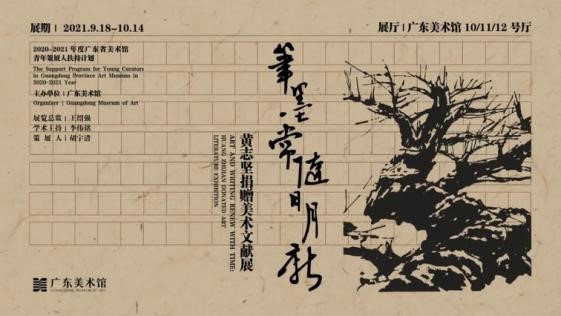 展期 | 2021.9.18-10.14
展厅 | 广东美术馆 10/11/12 号厅
2020-2021 年度广东省美术馆
青年策展人扶持计划
The Support Program for Young Curators
in Guangdong Province Art Museum in
2020-2021 Year
主办单位 | 广东美术馆
Organizer | Guangdong Museum of Art
展览总监 | 王绍强
学术主持 | 李伟铭
策 展 人 | 胡宇清
笔墨常随日月新
黄志坚捐赠美术文献展
ART AND WRITING RENEW WITH TIME:
HUANG ZHIJIAN DONATED ART
LITERATURE EXHIBITION
广东美术馆
GUANGDONG MUSEUM OF ART